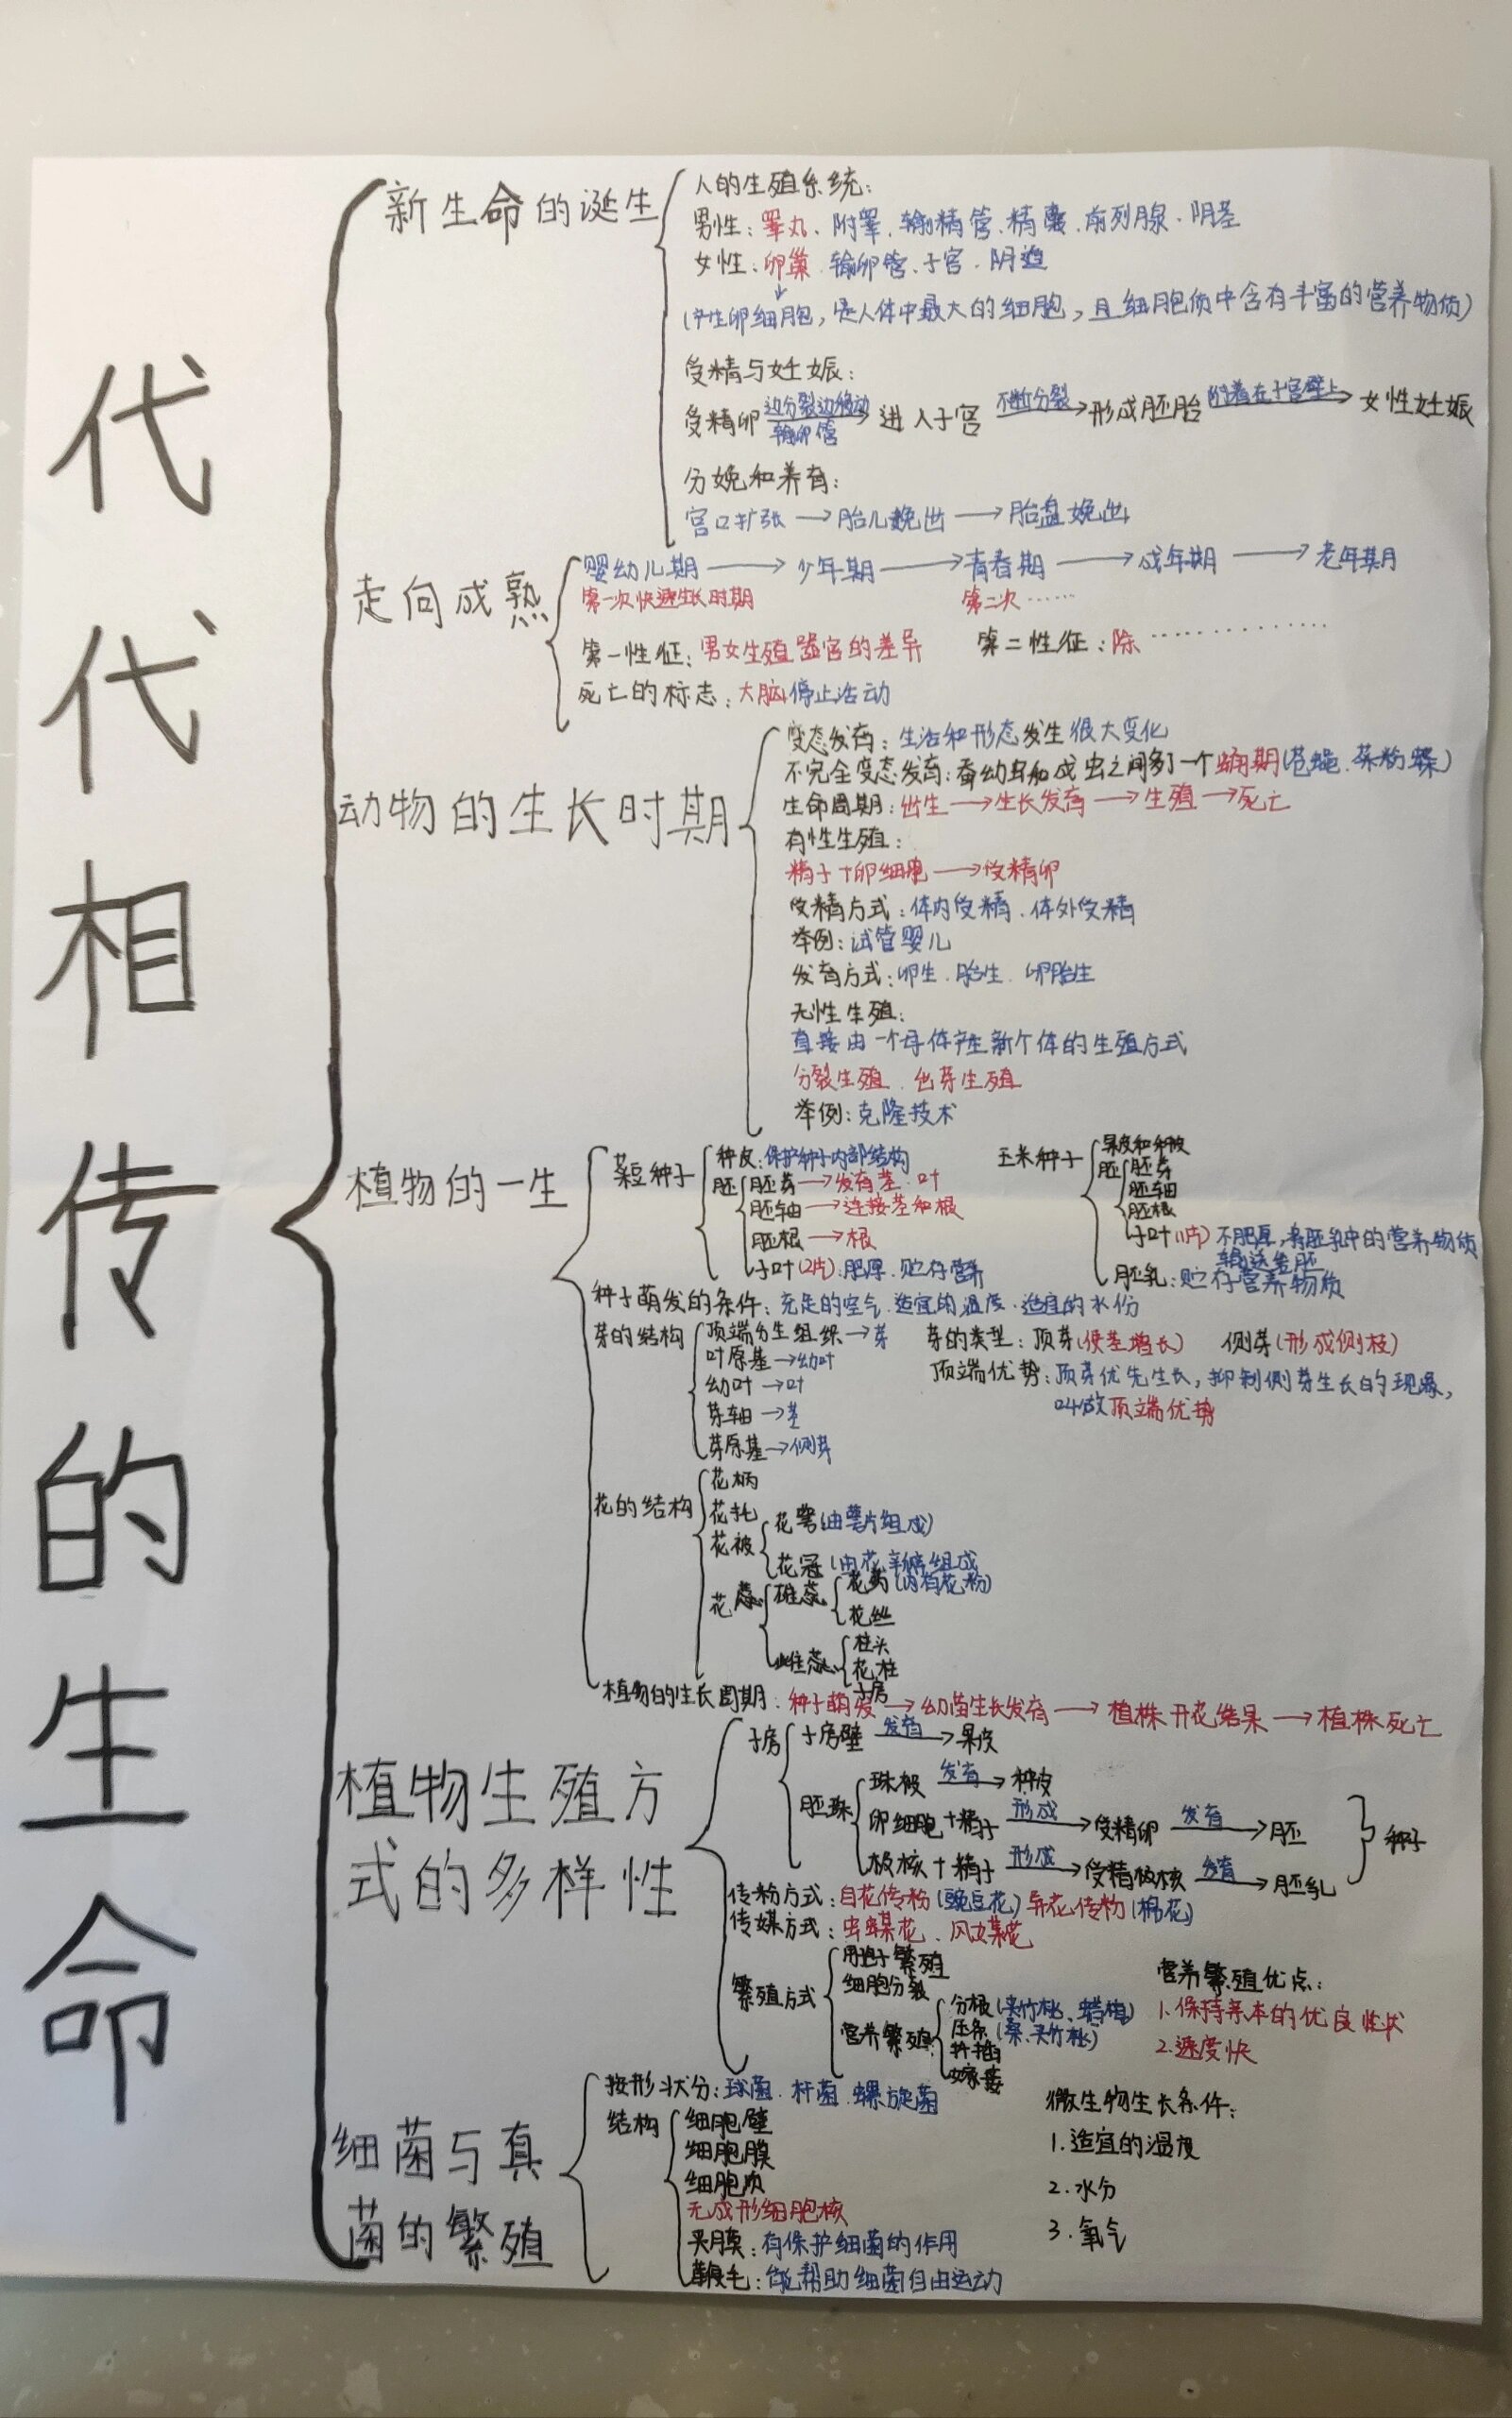 代代相传的生命
新生命的诞生
人的生殖系统:
男性:睾丸、附睾、输精管、精囊、前列腺、阴茎
女性:卵巢、输卵管、子宫、阴道
(产生卵细胞,是人体中最大的细胞,且细胞质中含有丰富的营养物质)
受精与妊娠:
受精卵 边分裂边移动 输卵管 → 进入子宫 不断分裂 → 形成胚胎 附着在子宫壁上 → 女性妊娠
分娩和养育:
宫口扩张 → 胎儿娩出 → 胎盘娩出
走向成熟
婴幼儿期 → 少年期 → 青春期 → 成年期 → 老年期
第一次快速生长时期 第二次……
第一性征:男女生殖器官的差异 第二性征:除…………
死亡的标志:大脑停止活动
动物的生长时期
变态发育:生活和形态发生很大变化
不完全变态发育:在幼虫和成虫之间多了一个蛹期(苍蝇、菜粉蝶)
生命周期:出生 → 生长发育 → 生殖 → 死亡
有性生殖:
精子+卵细胞 → 受精卵
受精方式:体内受精、体外受精
举例:试管婴儿
发育方式:卵生、胎生、卵胎生
无性生殖:
直接由一个母体产生新个体的生殖方式
分裂生殖、出芽生殖
举例:克隆技术
植物的一生
菜豆种子
种皮:保护种子内部结构
胚
胚芽 → 发育茎、叶
胚轴 → 连接茎和根
胚根 → 根
子叶(2片):肥厚、贮存营养
玉米种子
果皮和种皮
胚
胚芽
胚轴
胚根
子叶(1片) 不肥厚,将胚乳中的营养物质
输送给胚
胚乳:贮存营养物质
种子萌发的条件:充足的空气、适宜的温度、适宜的水份
芽的结构
顶端分生组织 → 芽
叶原基 → 幼叶
幼叶 → 叶
芽轴 → 茎
芽原基 → 侧芽
芽的类型:顶芽(使茎增长) 侧芽(形成侧枝)
顶端优势:顶芽优先生长,抑制侧芽生长的现象,
叫做顶端优势
花的结构
花柄
花托
花被
花萼(由萼片组成)
花冠(由花瓣组成
花蕊
雄蕊
花药(内有花粉)
花丝
雌蕊
柱头
花柱
子房
植物的生长周期:种子萌发 → 幼苗生长发育 → 植株开花结果 → 植株死亡
植物生殖方
式的多样性
子房
子房壁 发育 → 果皮
胚珠
珠被 发育 → 种皮
卵细胞+精子 形成 → 受精卵 发育 → 胚
极核+精子 形成 → 受精极核 发育 → 胚乳
种子
传粉方式:自花传粉(豌豆花)异花传粉(棉花)
传媒方式:虫媒花、风媒花
繁殖方式
用孢子繁殖
细胞分裂
营养繁殖:
分根(夹竹桃、蜡梅)
压条(桑、夹竹桃)
扦插
嫁接
营养繁殖优点:
1.保持亲本的优良性状
2.速度快
细菌与真
菌的繁殖
按形状分:球菌、杆菌、螺旋菌
结构
细胞壁
细胞膜
细胞质
无成形细胞核
荚膜:有保护细菌的作用
鞭毛:能帮助细菌自由运动
微生物生长条件:
1.适宜的温度
2.水分
3.氧气